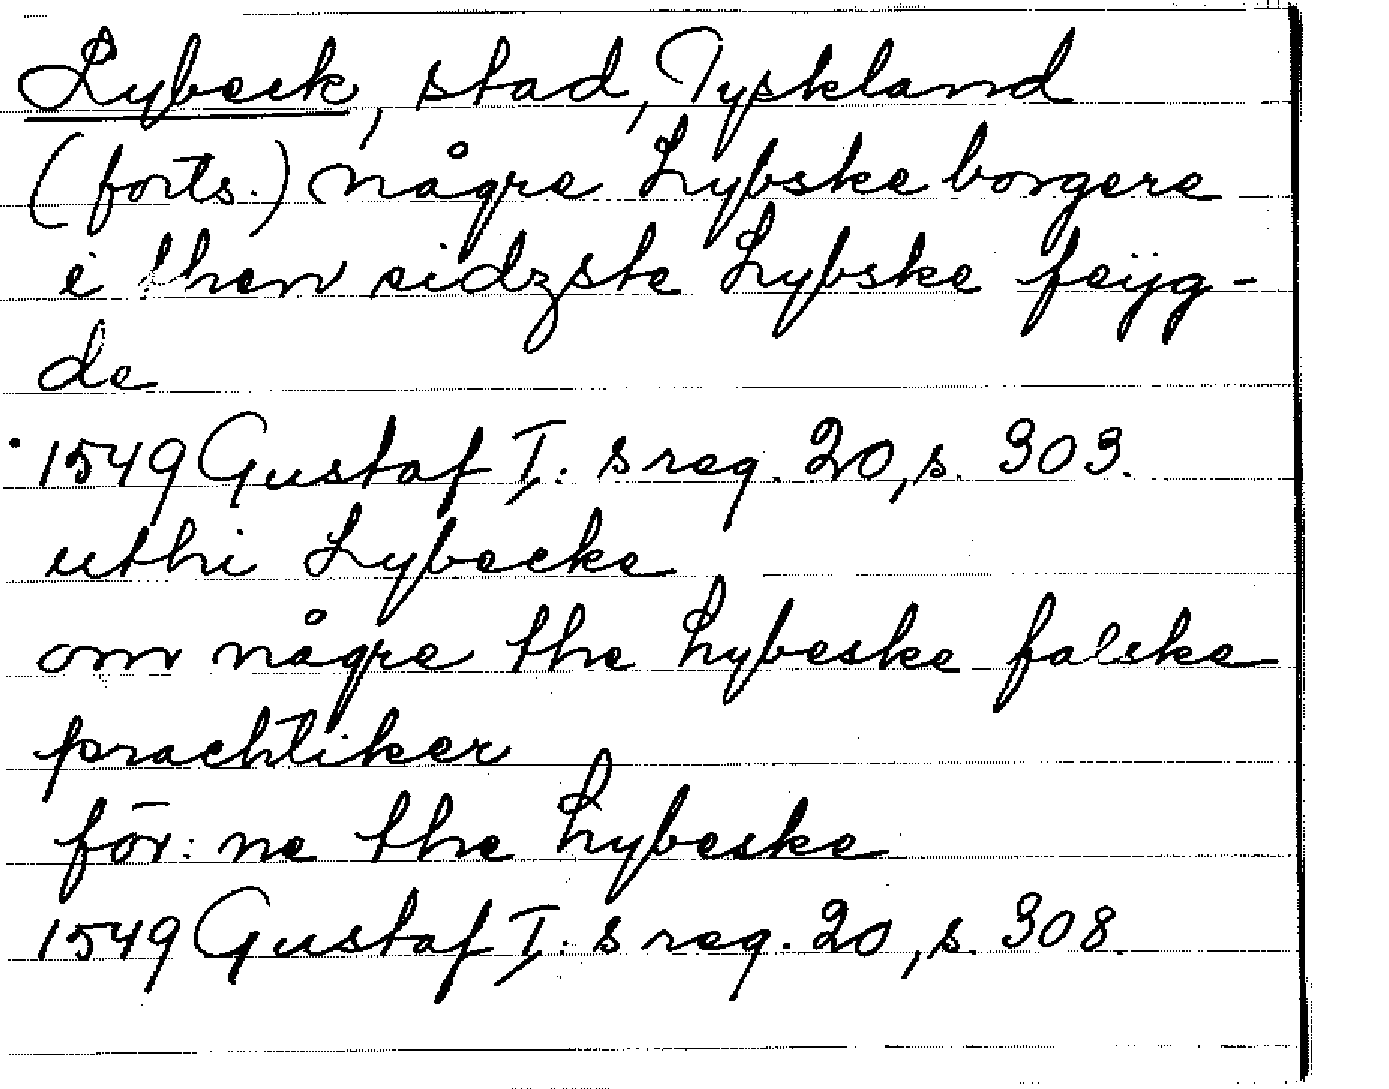 Lybeck, stad, Tyskland
(forts.) någre Lybske borgere
i then sidzste Lybske feijg-
de
1549 Gustaf I:s reg. 20, s. 303.
uthi Lybecke
om någre the Lybeske falske
prachtiker
för:ne the Lybeske
1549 Gustaf I:s reg. 20, s. 308.